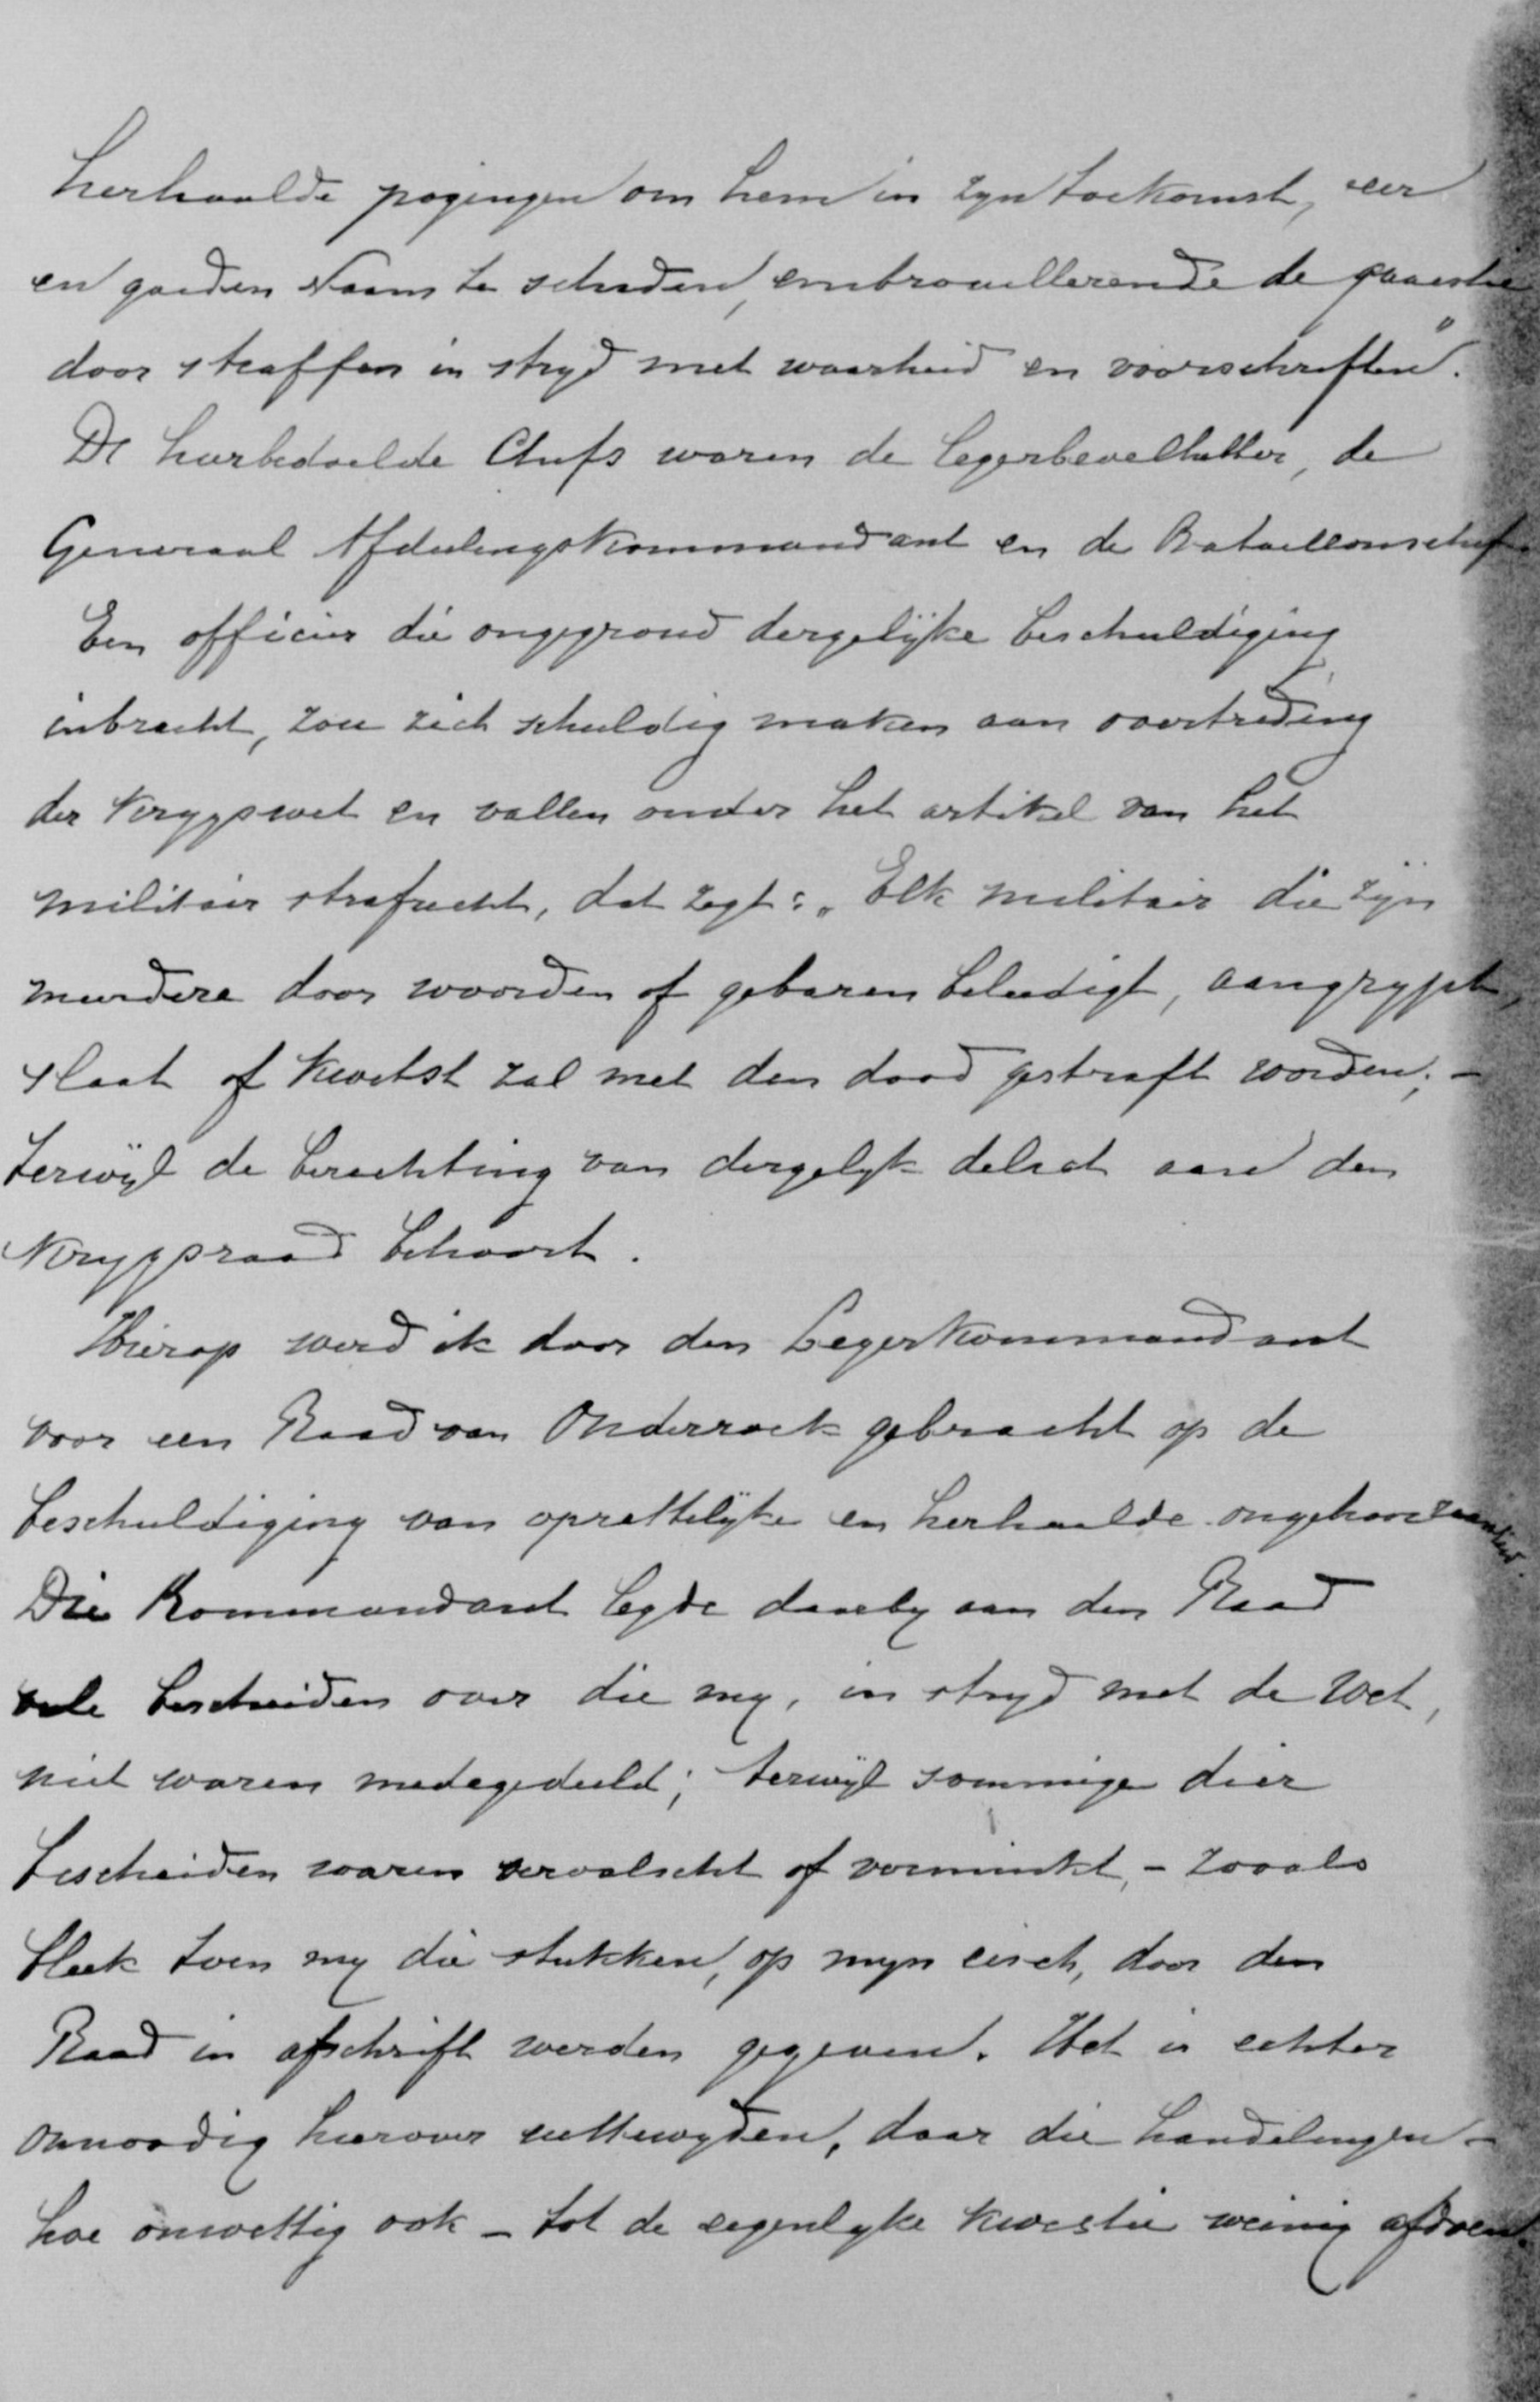 herhaalde pogingen om hem in zyn toekomst, eer
en goeden Naam te schaden, embrouillerende de quaestie
door straffen in stryd met waarheid en voorschriften".
De hierbedoelde Chefs waren de legerbevelhebber, de
Generaal Afdeelingskommandant en de Bataillonschef.
Een officier die ongegrond dergelijke beschuldiging
inbracht, zou zich schuldig maken aan overtreding
der Krygswet en vallen onder het artikel van het
militair strafrecht, dat zegt: „Elk militair die zijn
meerdere door woorden of gebaren beleedigt, aangrypt,
slaat of kwetst zal met den dood gestraft worden; -
terwijl de berechting van dergelyk delict aan den
Krygsraad behoort.
Hierop werd ik door den Legerkommandant
voor een Raad van Onderzoek gebracht op de
beschuldiging van opzettelijke en herhaalde ongehoorzaamheid.
Die Kommandant legde daarby aan den Raad
vele bescheiden over die my, in stryd met de Wet,
niet waren medegedeeld; terwijl sommige dier
bescheiden waren vervalscht of verminkt, - zooals
bleek toen my die stukken, op myn eisch, door den
Raad in afschrift werden gegeven. Het is echter
onnoodig hierover uittewyden, daar die handelingen -
hoe onwettig ook - tot de eigenlyke kwestie weinig afdoen.